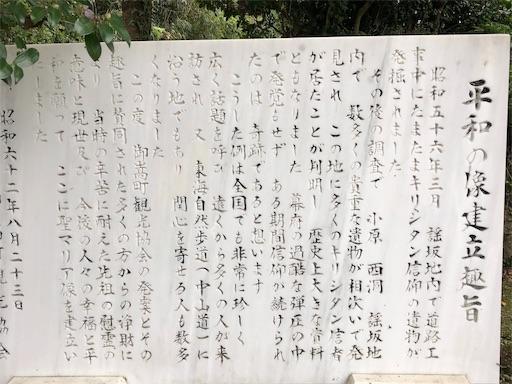 平和の像建立趣旨
昭和五十六年三月 謡坂地内で道路工
事中にたまたまキリシタン信仰の遺物が
発掘されました
その後の調査で 小原 西洞 謡坂地
内で 数多くの貴重な遺物が相次いで発
見され この地に多くのキリシタン信者
が居たことが判明し 歴史上大きな資料
ともなりました 幕府の過酷な弾圧の中
で発覚もせず ある期間信仰が続けられ
たのは 奇跡であると想います
こうした例は全国でも非常に珍しく
広く話題を呼び 遠くから多くの人が来
訪され 又 東海自然歩道(中山道)に
沿う地でもあり 関心を寄せる人も数多
くなりました
この度 御嵩町観光協会の発案とその
趣旨に賛同された多くの方からの浄財に
より 当時の辛苦に耐えた先祖の慰霊の
意味と現世及び 今後の人々の幸福と平
和を願って ここに聖マリア像を建立い
しました
昭和六十二年八月二十三日
町観光協会